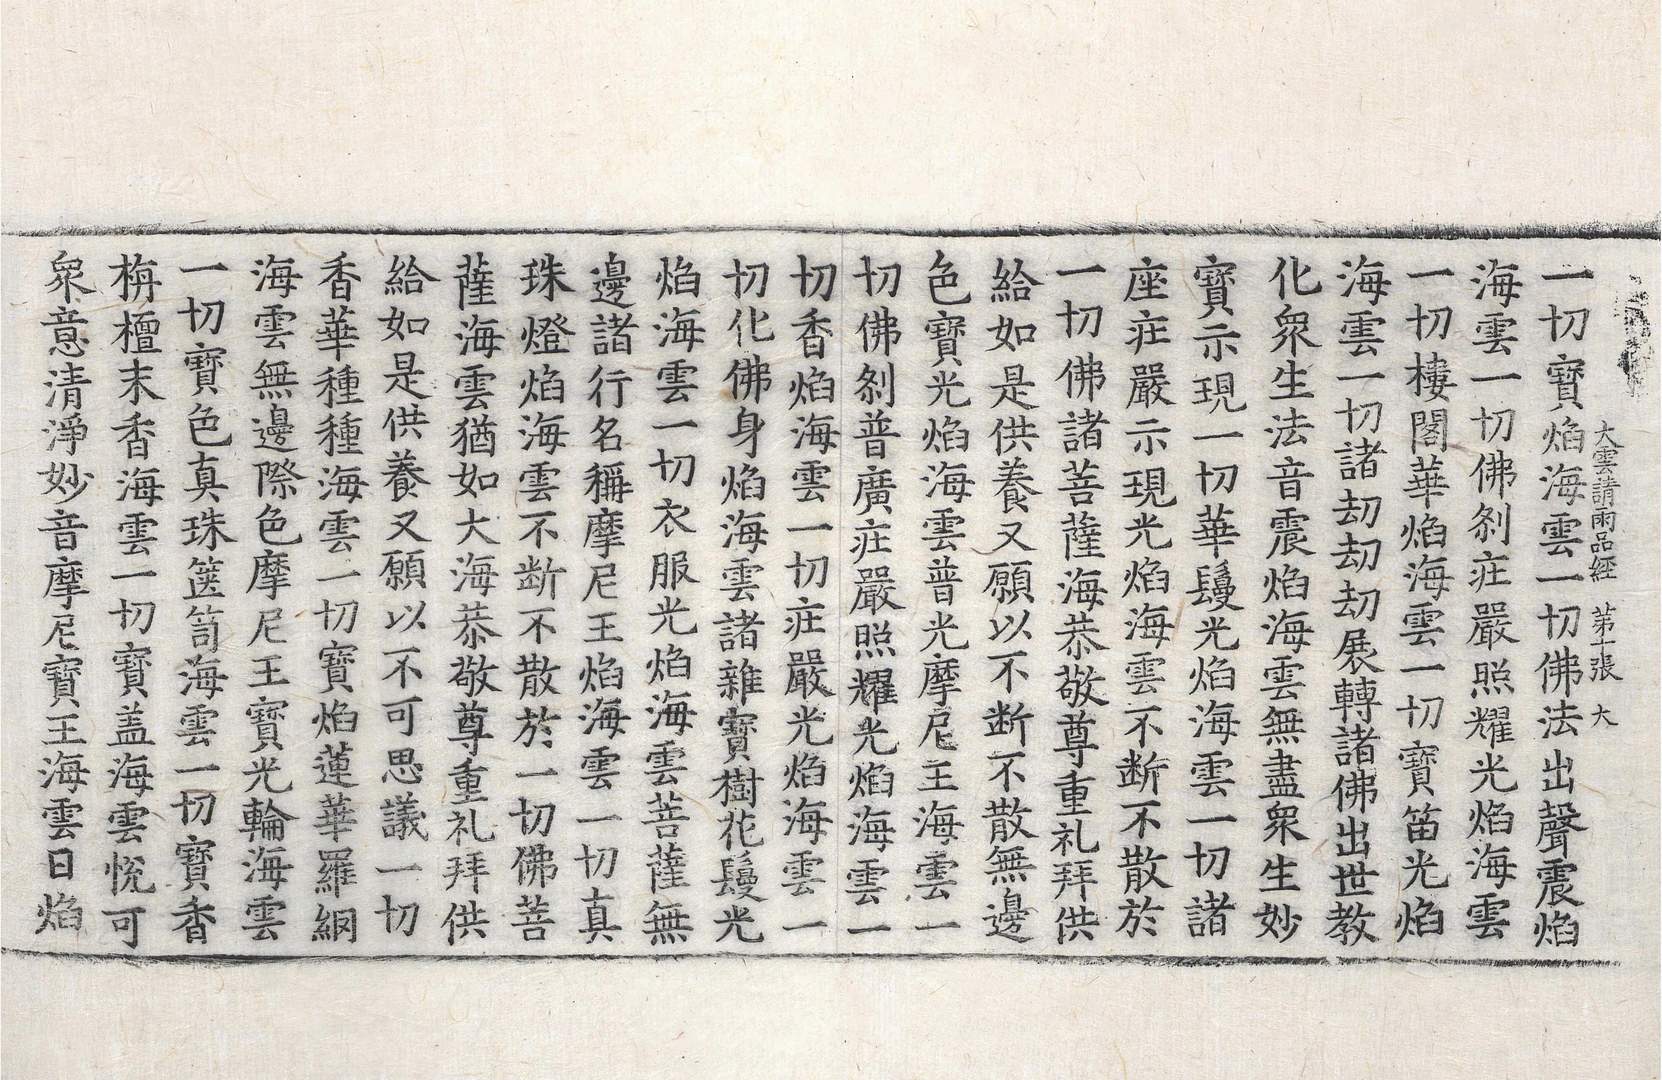 大雲請雨品經　第十張　大
一切寶焰海雲一切佛法出聲震焰
海雲一切佛刹莊嚴照耀光焰海雲
一切樓閣華焰海雲一切寶笛光焰
海雲一切諸劫劫劫展轉諸佛出世教
化衆生法音震焰海雲無盡衆生妙
寶示現一切華鬘光焰海雲一切諸
座莊嚴示現光焰海雲不断不散於
一切佛諸菩薩海恭敬尊重礼拜供
給如是供養又願以不断不散無邊
色寶光焰海雲普光摩尼王海雲一
切佛刹普廣莊嚴照耀光焰海雲一
切香焰海雲一切莊嚴光焰海雲一
切化佛身焰海雲諸雜寶樹花鬘光
焰海雲一切衣服光焰海雲菩薩無
邊諸行名稱摩尼王焰海雲一切真
珠燈焰海雲不断不散於一切佛菩
薩海雲猶如大海恭敬尊重礼拜供
給如是供養又願以不可思議一切
香華種種海雲一切寶焰蓮華羅網
海雲無邊際色摩尼王寶光輪海雲
一切寶色真珠篋笥海雲一切寶香
栴檀末香海雲一切寶盖海雲悅可
衆意清淨妙音摩尼寶王海雲日焰